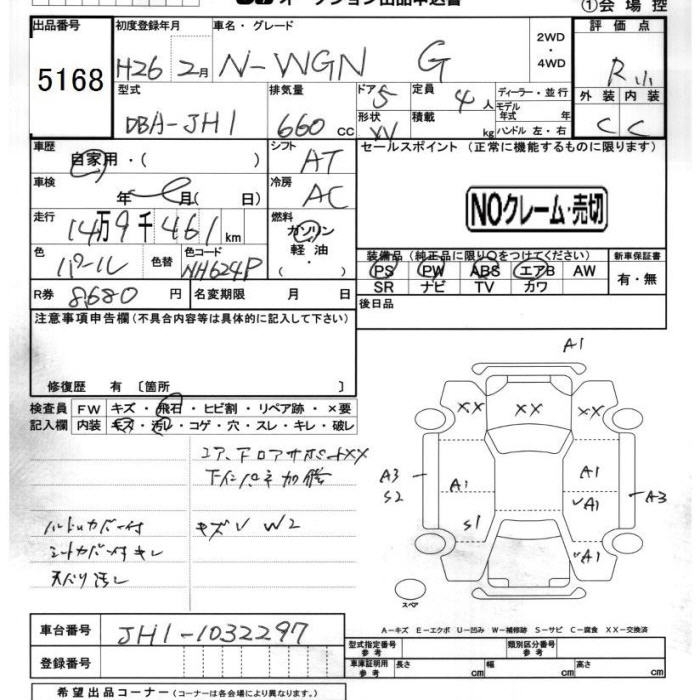 オークション出品申込書
①会場控
出品番号 初度登録年月 車名・グレード 評価点
5168 H26 2月 N-WGN G 2WD・4WD R
型式 排気量 ドア 5 定員 4人 ディーラー・並行 外装 内装
DBA-JH1 660cc 形状 W 積載 kg モデル年式 年 C C
ハンドル 左・右
車歴 シフト セールスポイント (正常に機能するものに限ります)
自家用・( ) AT
車検 冷房
年 月( 日) AC NOクレーム・売切
走行 燃料
14万9千461km ガソリン
色 色替 色コード 軽油 装備品 (純正品に限り○をつけてください) 新車保証書
パール NH624P ・( ) PS PW ABS エアB AW 有・無
SR ナビ TV カワ
R券 8680円 名変期限 月 日 後日品
注意事項申告欄 (不具合内容等は具体的に記入して下さい)
修復歴 有 〔箇所 〕
検査員 FW キズ・飛石・ヒビ割・リペア跡・×要
記入欄 内装 キズ・汚レ・コゲ・穴・スレ・キレ・破レ
キズ W2
シートカバー付 キレ
A1
XX XX XX
A3 S2 A1 A1 A3
A1
S1 A1
スペア
A－キズ E－エクボ U－凹み W－補修跡 S－サビ C－腐食 XX－交換済
車台番号 JH1-1032297 型式指定番号 参考 類別区分番号 参考
登録番号 車庫証明用 参考 長さ cm 幅 cm 高さ cm
希望出品コーナー (コーナーは各会場により異なります。)